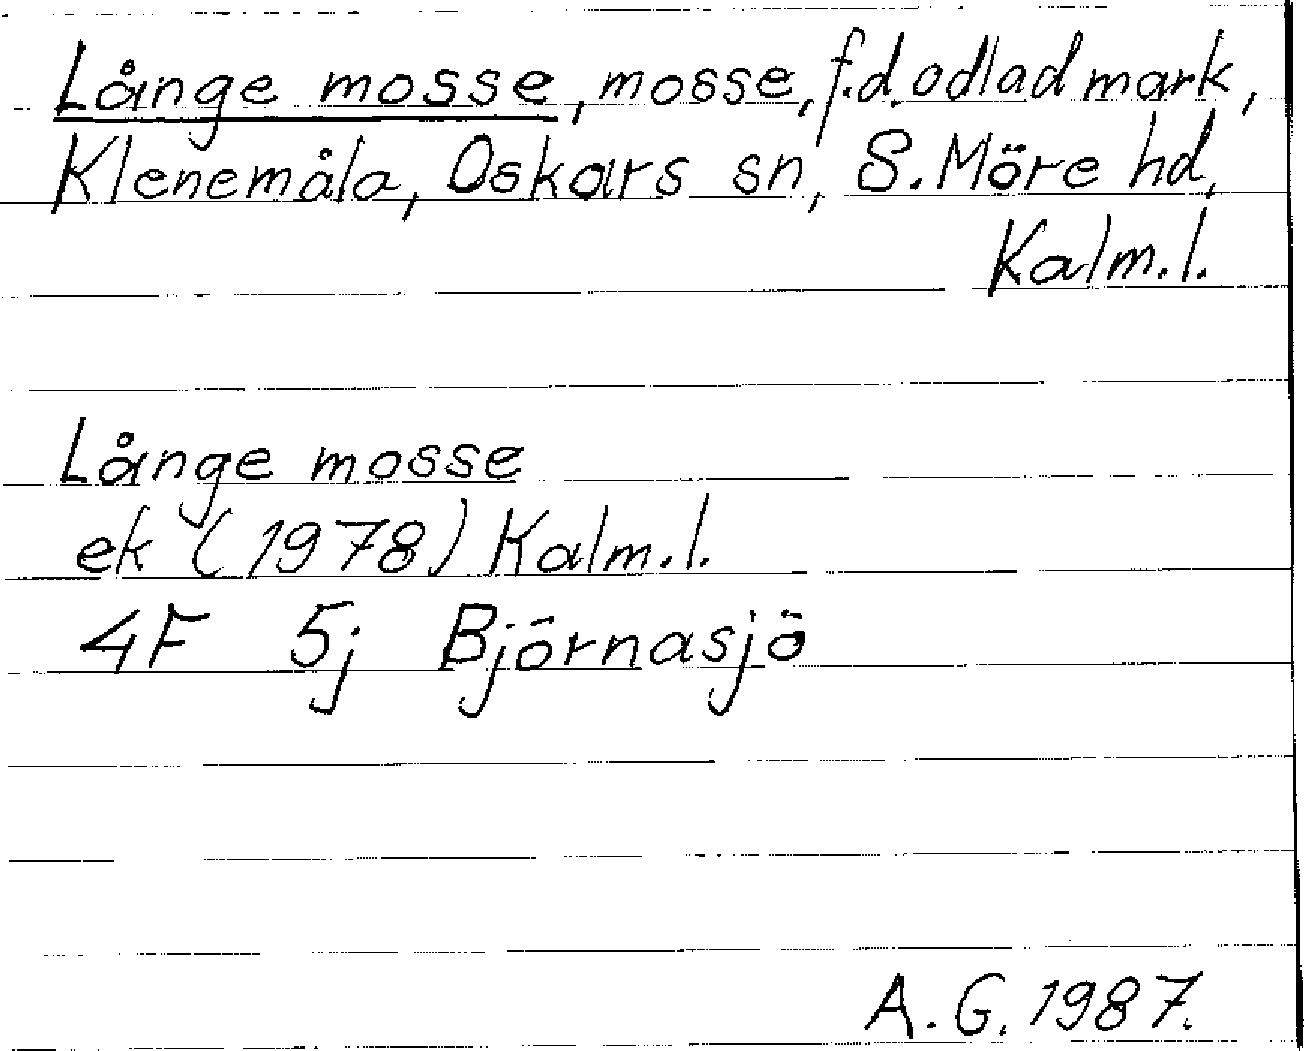 Långe mosse, mosse, f.d. odlad mark,
Klenemåla, Oskars sn, S. Möre hd,
Kalm.l.
Långe mosse
ek (1978) Kalm.l.
4F 5j Björnasjö
A.G. 1987.